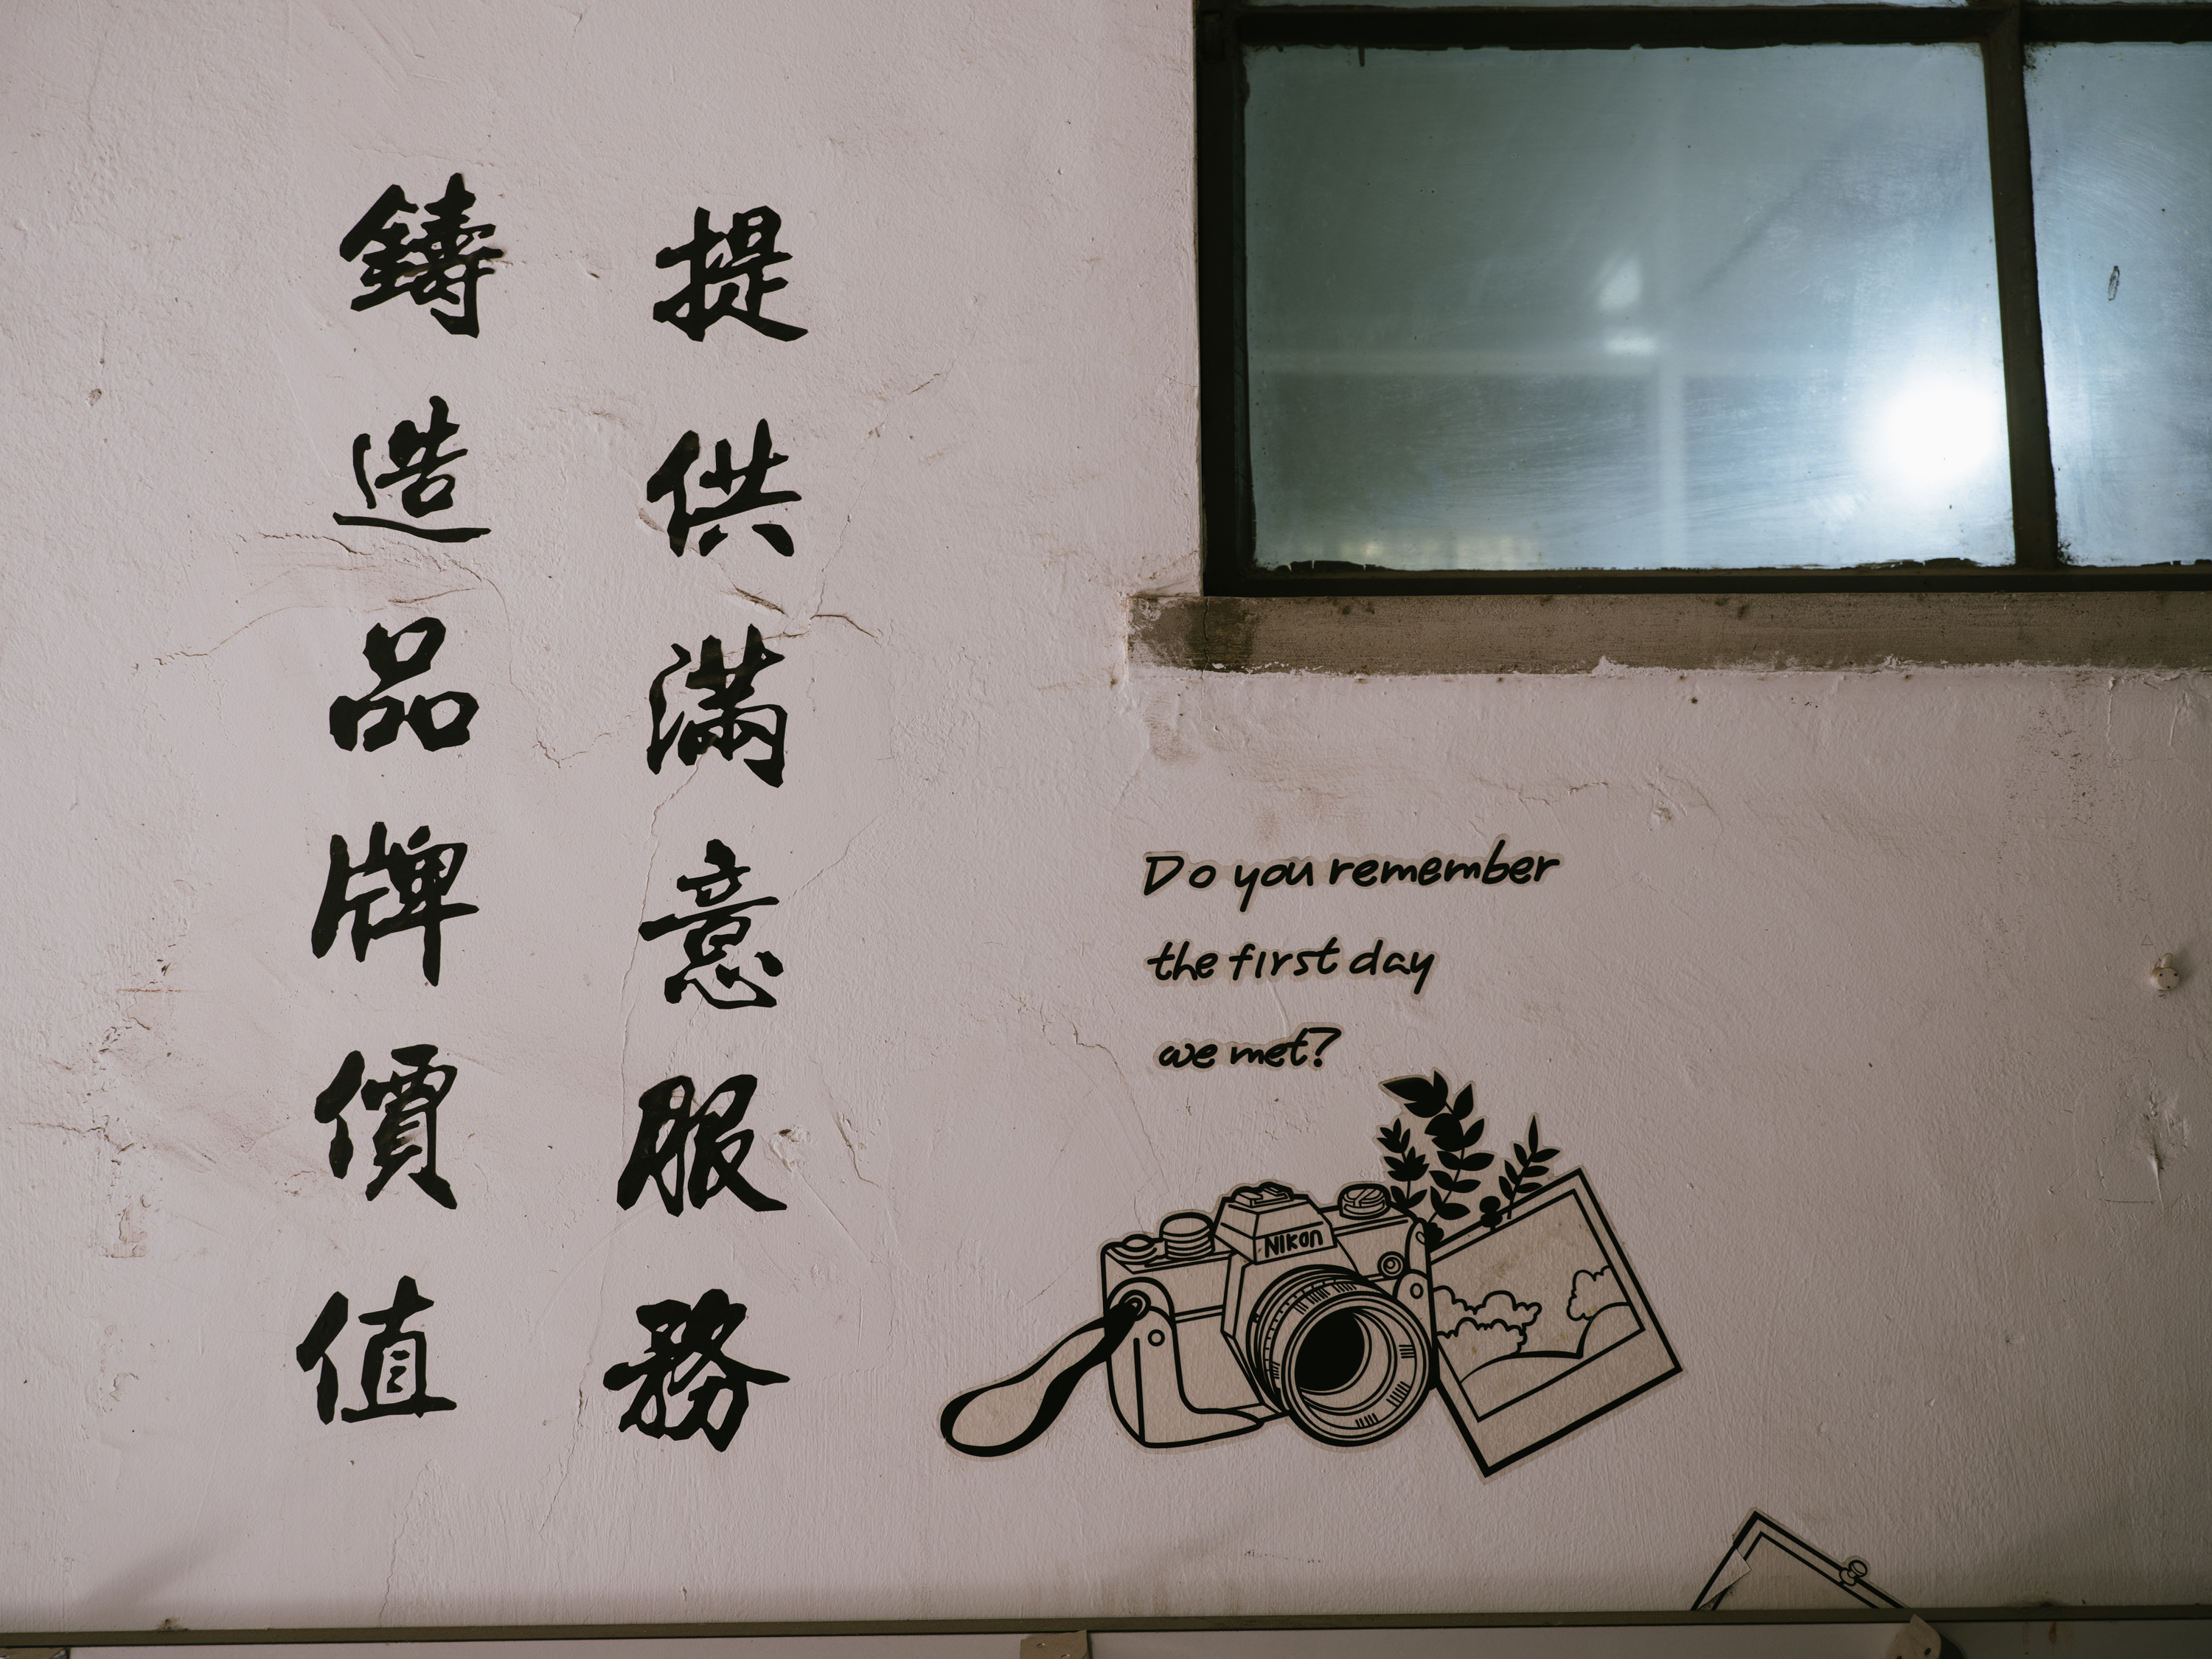 提供滿意服務
鑄造品牌價值
Do you remember
the first day
we met?
Nikon